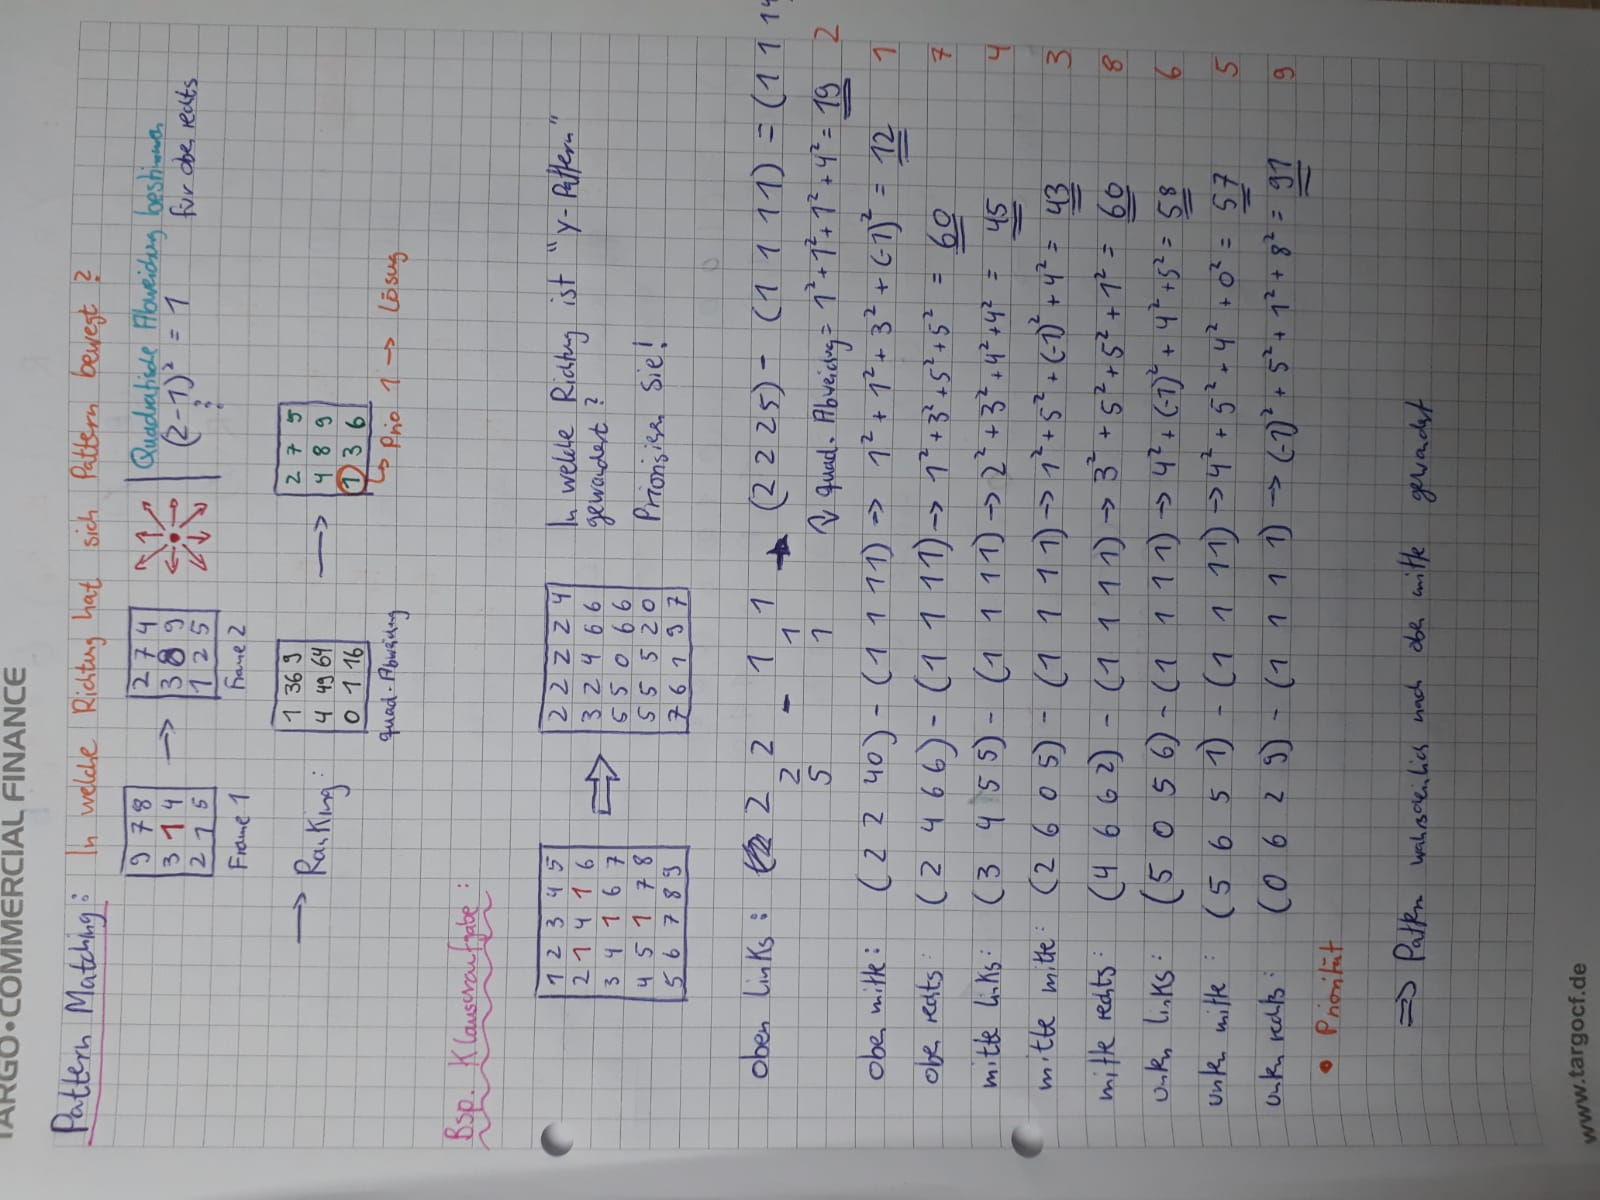 TARGO•COMMERCIAL FINANCE
Pattern Matching: In welche Richtung hat sich Pattern bewegt?
9 7 8
3 1 4
2 1 5
Frame 1
2 7 4
3 8 9
1 2 5
Frame 2
Quadratische Abweichung bestimmen
(2-1)² = 1 für oben rechts
Ranking:
1 36 9
4 49 64
0 1 16
quad. Abweichung
2 7 5
4 8 9
1 3 6
Prio 1 → Lösug
Bsp. Klausuraufgabe:
1 2 3 4 5
2 1 4 1 6
3 4 1 6 7
4 5 1 7 8
5 6 7 8 9
2 2 2 2 4
3 2 4 6 6
5 5 0 6 6
5 5 5 2 0
7 6 1 9 7
In welche Richtung ist "Y-Pattern"
gewandert?
Priorisieren Sie!
oben links: 2 2 1 1 → (2 2 2 5) - (1 1 1 1) = (1 1 1 4
2 - 1
5 1
quad. Abweichug = 1² + 1² + 1² + 4² = 19 2
oben mitte: (2 2 4 0) - (1 1 1 1) → 1² + 1² + 3² + (-1)² = 12 1
oben rechts: (2 4 6 6) - (1 1 1 1) → 1² + 3² + 5² + 5² = 60 7
mitte links: (3 4 5 5) - (1 1 1 1) → 2² + 3² + 4² + 4² = 45 4
mitte mitte: (2 6 0 5) - (1 1 1 1) → 1² + 5² + (-1)² + 4² = 43 3
mitte rechts: (4 6 6 2) - (1 1 1 1) → 3² + 5² + 5² + 1² = 60 8
unten links: (5 0 5 6) - (1 1 1 1) → 4² + (-1)² + 4² + 5² = 58 6
unten mitte: (5 6 5 1) - (1 1 1 1) → 4² + 5² + 4² + 0² = 57 5
unten rechts: (0 6 2 9) - (1 1 1 1) → (-1)² + 5² + 1² + 8² = 91 9
• Priorität
⇒ Pattern wahrscheinlich nach oben mitte gewandert
www.targocf.de